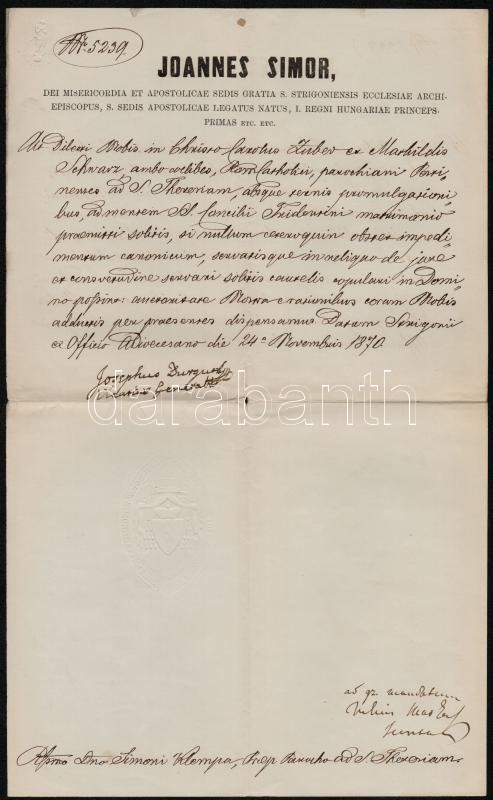 Nr. 5239
JOANNES SIMOR,
DEI MISERICORDIA ET APOSTOLICAE SEDIS GRATIA S. STRIGONIENSIS ECCLESIAE ARCHI-
EPISCOPUS, S. SEDIS APOSTOLICAE LEGATUS NATUS, I. REGNI HUNGARIAE PRINCEPS-
PRIMAS ETC. ETC.
Ut Dilecti Nobis in Christo Carolus Zuber et Mathildis
Schwarz, ambo coelibes, Rom. Catholici, parochiani
ad S. Theresiam, absque ternis promulgationi
bus, ad mentem SS. Concilii Tridentini matrimonio
praemitti solitis, si nullum ceteroquin obstet impedi
mentum canonicum, servatisque in reliquo de jure
et consvetudine servari solitis cautelis copulari in Domi
no possint: auctoritate Nostra e rationibus coram Nobis
adductis per praesentes dispensamus. Datum Strigonii
ex Officio Dioecesano die 24a Novembris 1870.
Josephus
Vicarius Generalis
darabanth
ad gr. mandatum
Dno Simoni Klempa, Parocho ad S. Theresiam